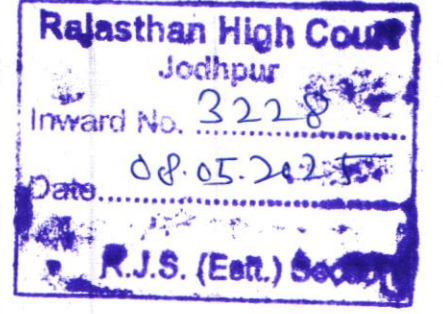 Rajasthan High Court
Jodhpur
Inward No. 3228
Date 08.05.2025
R.J.S. (Estt.) Section